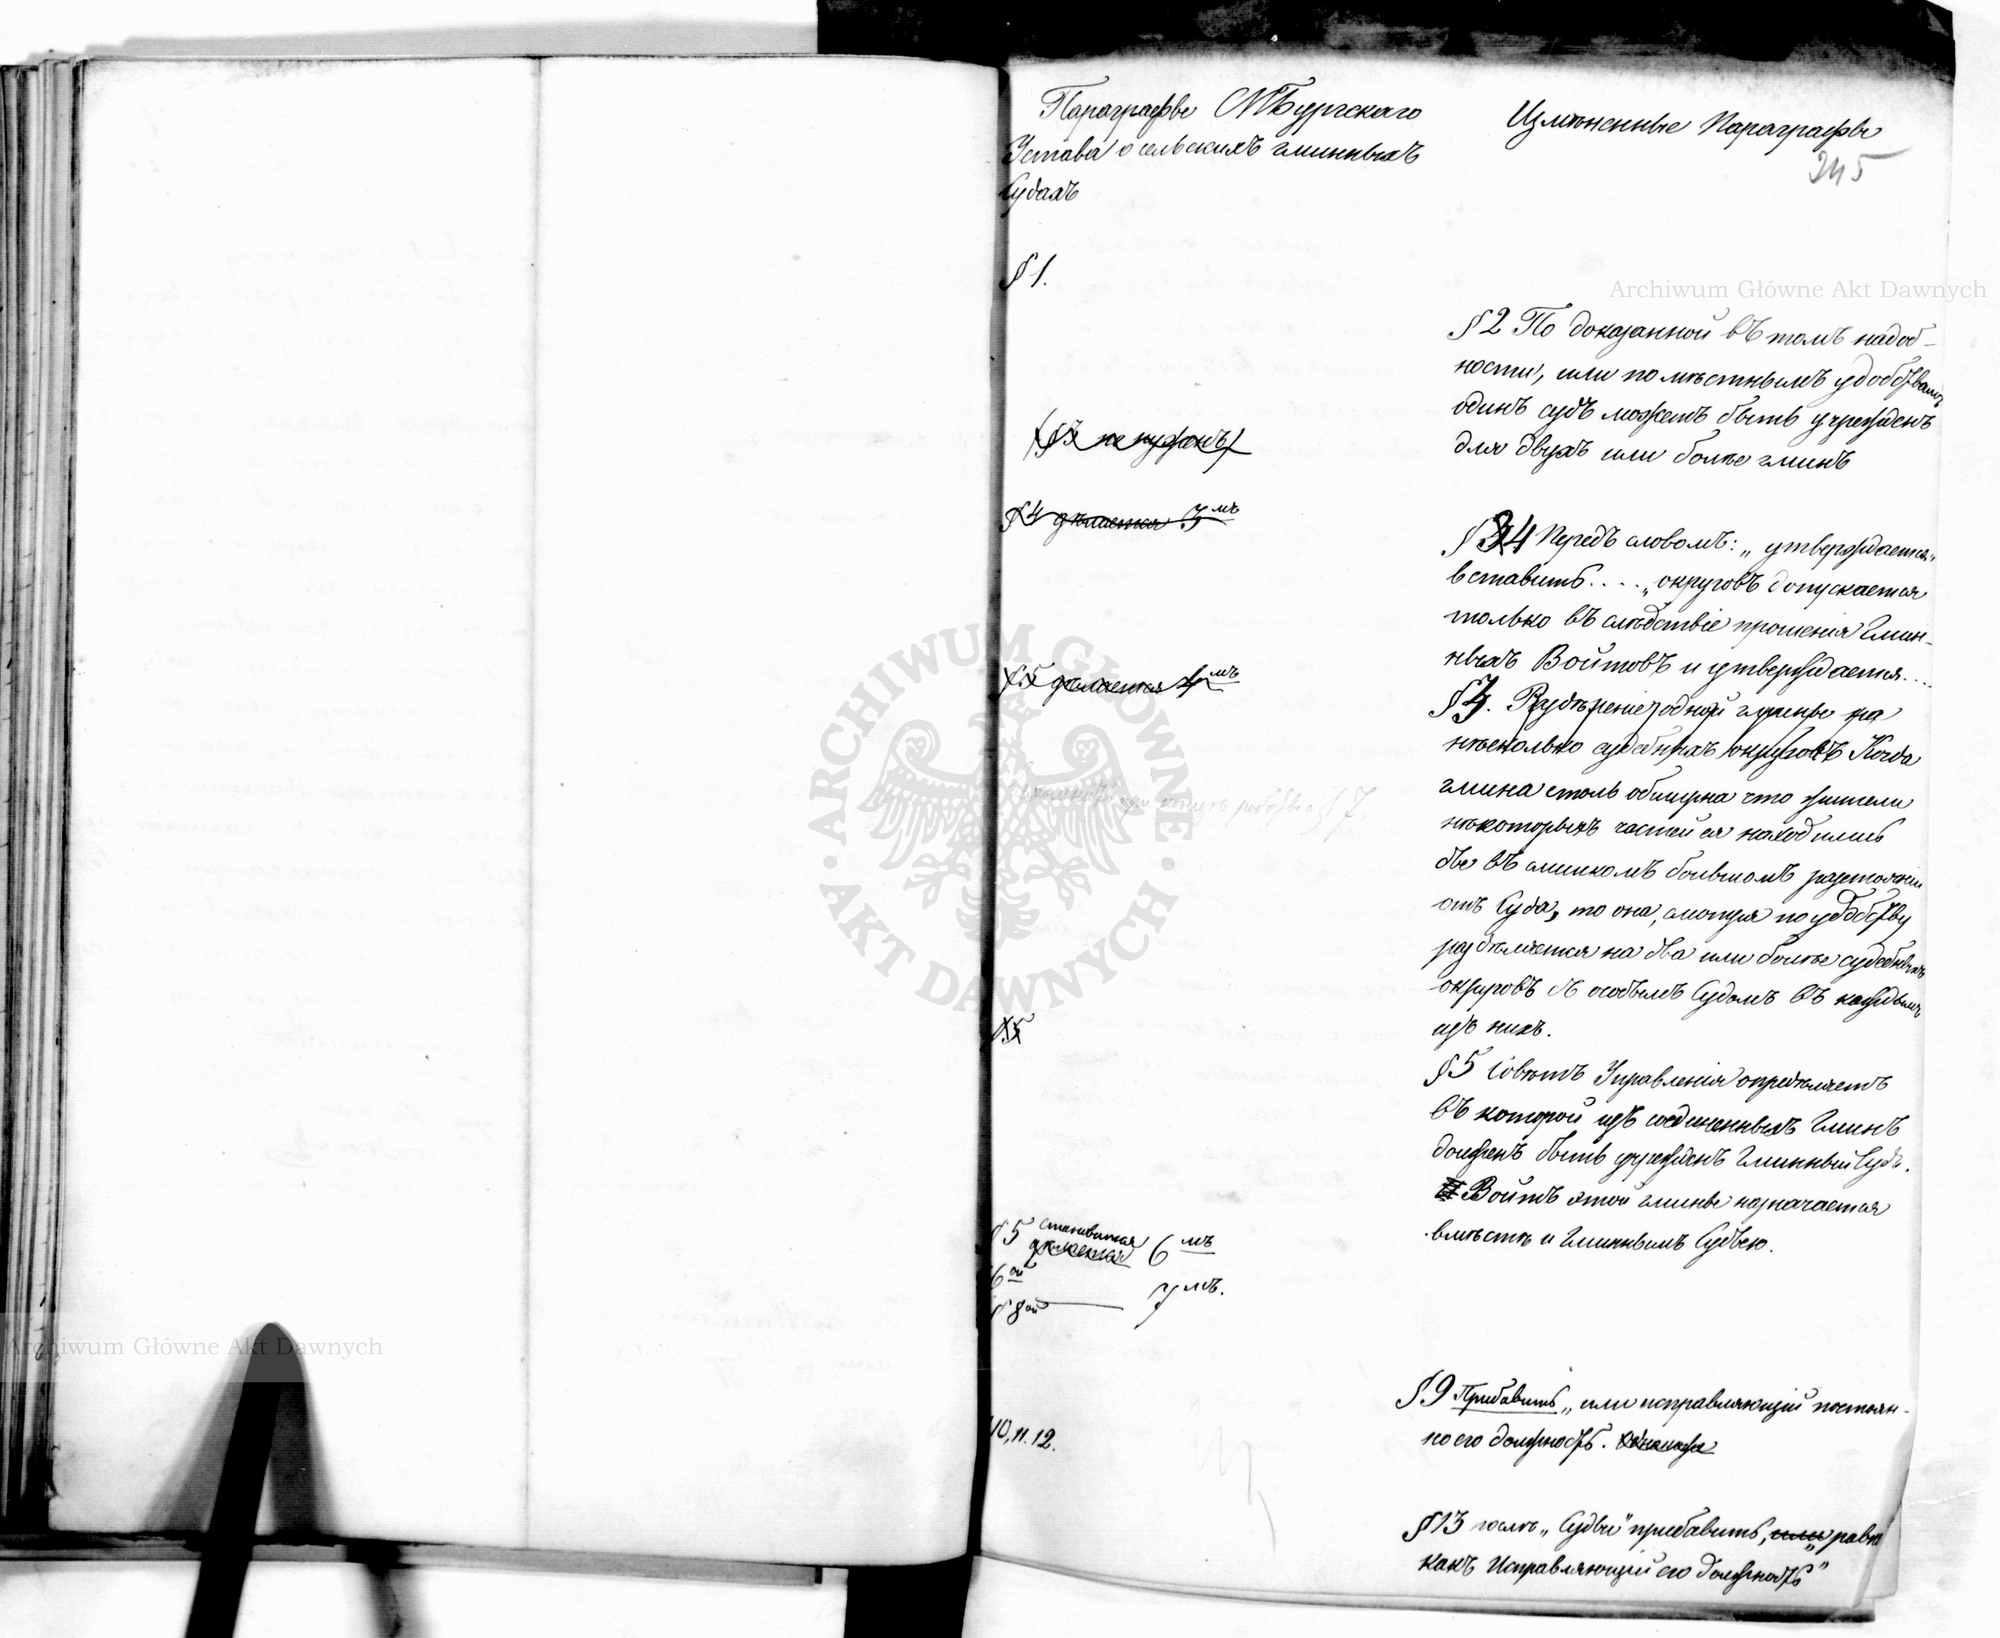 Параграфы СПБургскаго
Устава о сельскихъ гминныхъ
Судахъ
§ 1.
(§ 3 не нуженъ)
§ 4 дѣлается 3мъ
§ 5 дѣлается 4мъ
§ 7.
§ 5
§ 5 становится 6мъ
дѣлается
6ой
7мъ.
§ 8ой
10, 11. 12.
Измѣненные Параграфы
345
Archiwum Główne Akt Dawnych
§ 2 По доказанной въ томъ надоб-
ности, или по мѣстнымъ удобствамъ
одинъ судъ можетъ быть учрежденъ
для двухъ или болѣе гминъ
§ 4 Передъ словомъ: „утверждается“
вставить.... „округовъ допускается
только въ слѣдствіе прошенія Гмин-
ныхъ Войтовъ и утверждается....
§ 3. Раздѣленіе одной гмины на
нѣсколько судебныхъ округовъ Когда
гмина столь обширна что жители
нѣкоторыхъ частей ея находились
бы въ слишкомъ большомъ разстояніи
отъ Суда, то она, смотря по удобству
раздѣляется на два или болѣе судебныхъ
округовъ съ особымъ Судомъ въ каждымъ
изъ нихъ.
§ 5 Совѣтъ Управленія опредѣляетъ
въ которой изъ соединенныхъ Гминъ
долженъ быть учрежденъ Гминный Судъ.
Войтъ этой гмины назначается
вмѣстѣ и Гминнымъ Судьею.
§ 9 Прибавить „или исправляющій постоян-
но его должность.
§ 13 послѣ „Судьи“ прибавить, или „равно
какъ Исправляющій его должность“
ARCHIWUM GŁÓWNE · AKT DAWNYCH ·
Archiwum Główne Akt Dawnych